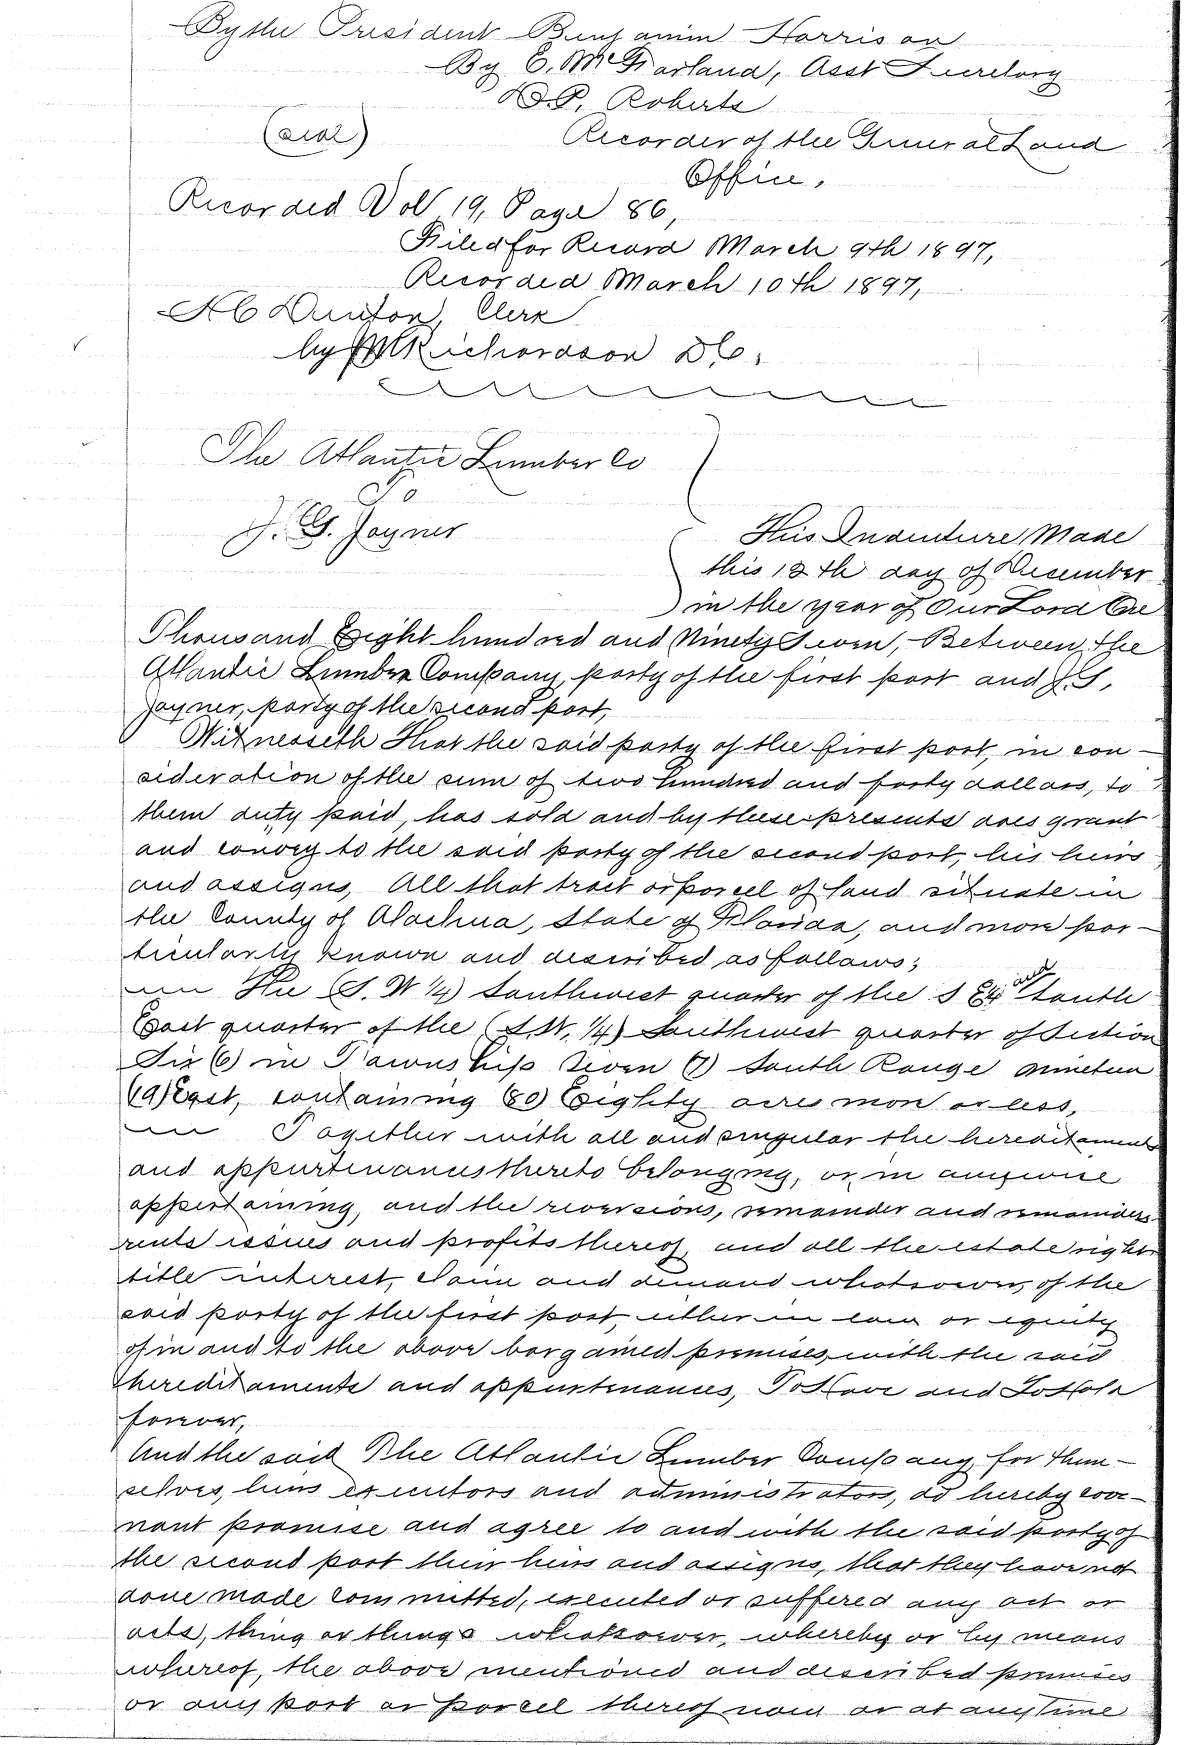 By the President Benjamin Harrison
By E. McFarland, Asst Secretary
D. P. Roberts
(seal) Recorder of the General Land
Office,
Recorded Vol 19, Page 86,
Filed for Record March 9th 1897,
Recorded March 10th 1897,
Clerk
by Richardson D.C.
The Atlantic Lumber Co
To
J. G. Joyner
This Indenture Made
this 13th day of December
in the year of Our Lord One
Thousand Eight hundred and Ninety Seven, Between, the
Atlantic Lumber Company, party of the first part and J. G.
Joyner, party of the second part,
Witnesseth That the said party of the first part, in con-
sideration of the sum of two hundred and forty dollars, to
them duty paid, has sold and by these presents does grant
and convey to the said party of the second part, his heirs
and assigns, All that tract or parcel of land situate in
the County of Alachua, State of Florida, and more par-
ticularly known and described as follows;
The (S. W 1/4) Southwest quarter of the S E 1/4 and South
East quarter of the (S. W. 1/4) Southwest quarter of Section
Six (6) in Township Seven (7) South Range nineteen
(19) East, containing (80) Eighty acres more or less,
Together with all and singular the hereditaments
and appurtenances thereto belonging, or, in anywise
appertaining, and the reversions, remainder and remainders
rents issues and profits thereof, and all the estate right
title interest, claim and demand whatsoever, of the
said party of the first part, either in law or equity
of in and to the above bargained premises, with the said
hereditaments and appurtenances, To Have and To Hold
forever,
And the said The Atlantic Lumber Company for them-
selves, heirs executors and administrators, do hereby cove-
nant promise and agree to and with the said party of
the second part their heirs and assigns, that they have not
done made committed, executed or suffered any act or
acts, thing or things whatsoever, whereby or by means
whereof, the above mentioned and described premises
or any part or parcel thereof now or at anytime